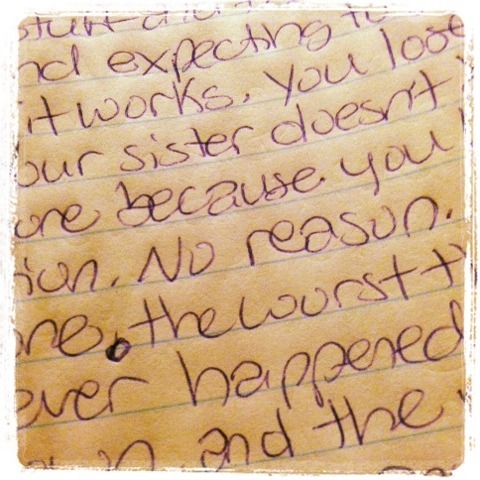 nd expecting to
it works. You lose
our sister doesn't
ore because you
ion. No reason.
one. the worst t
ever happened
and the